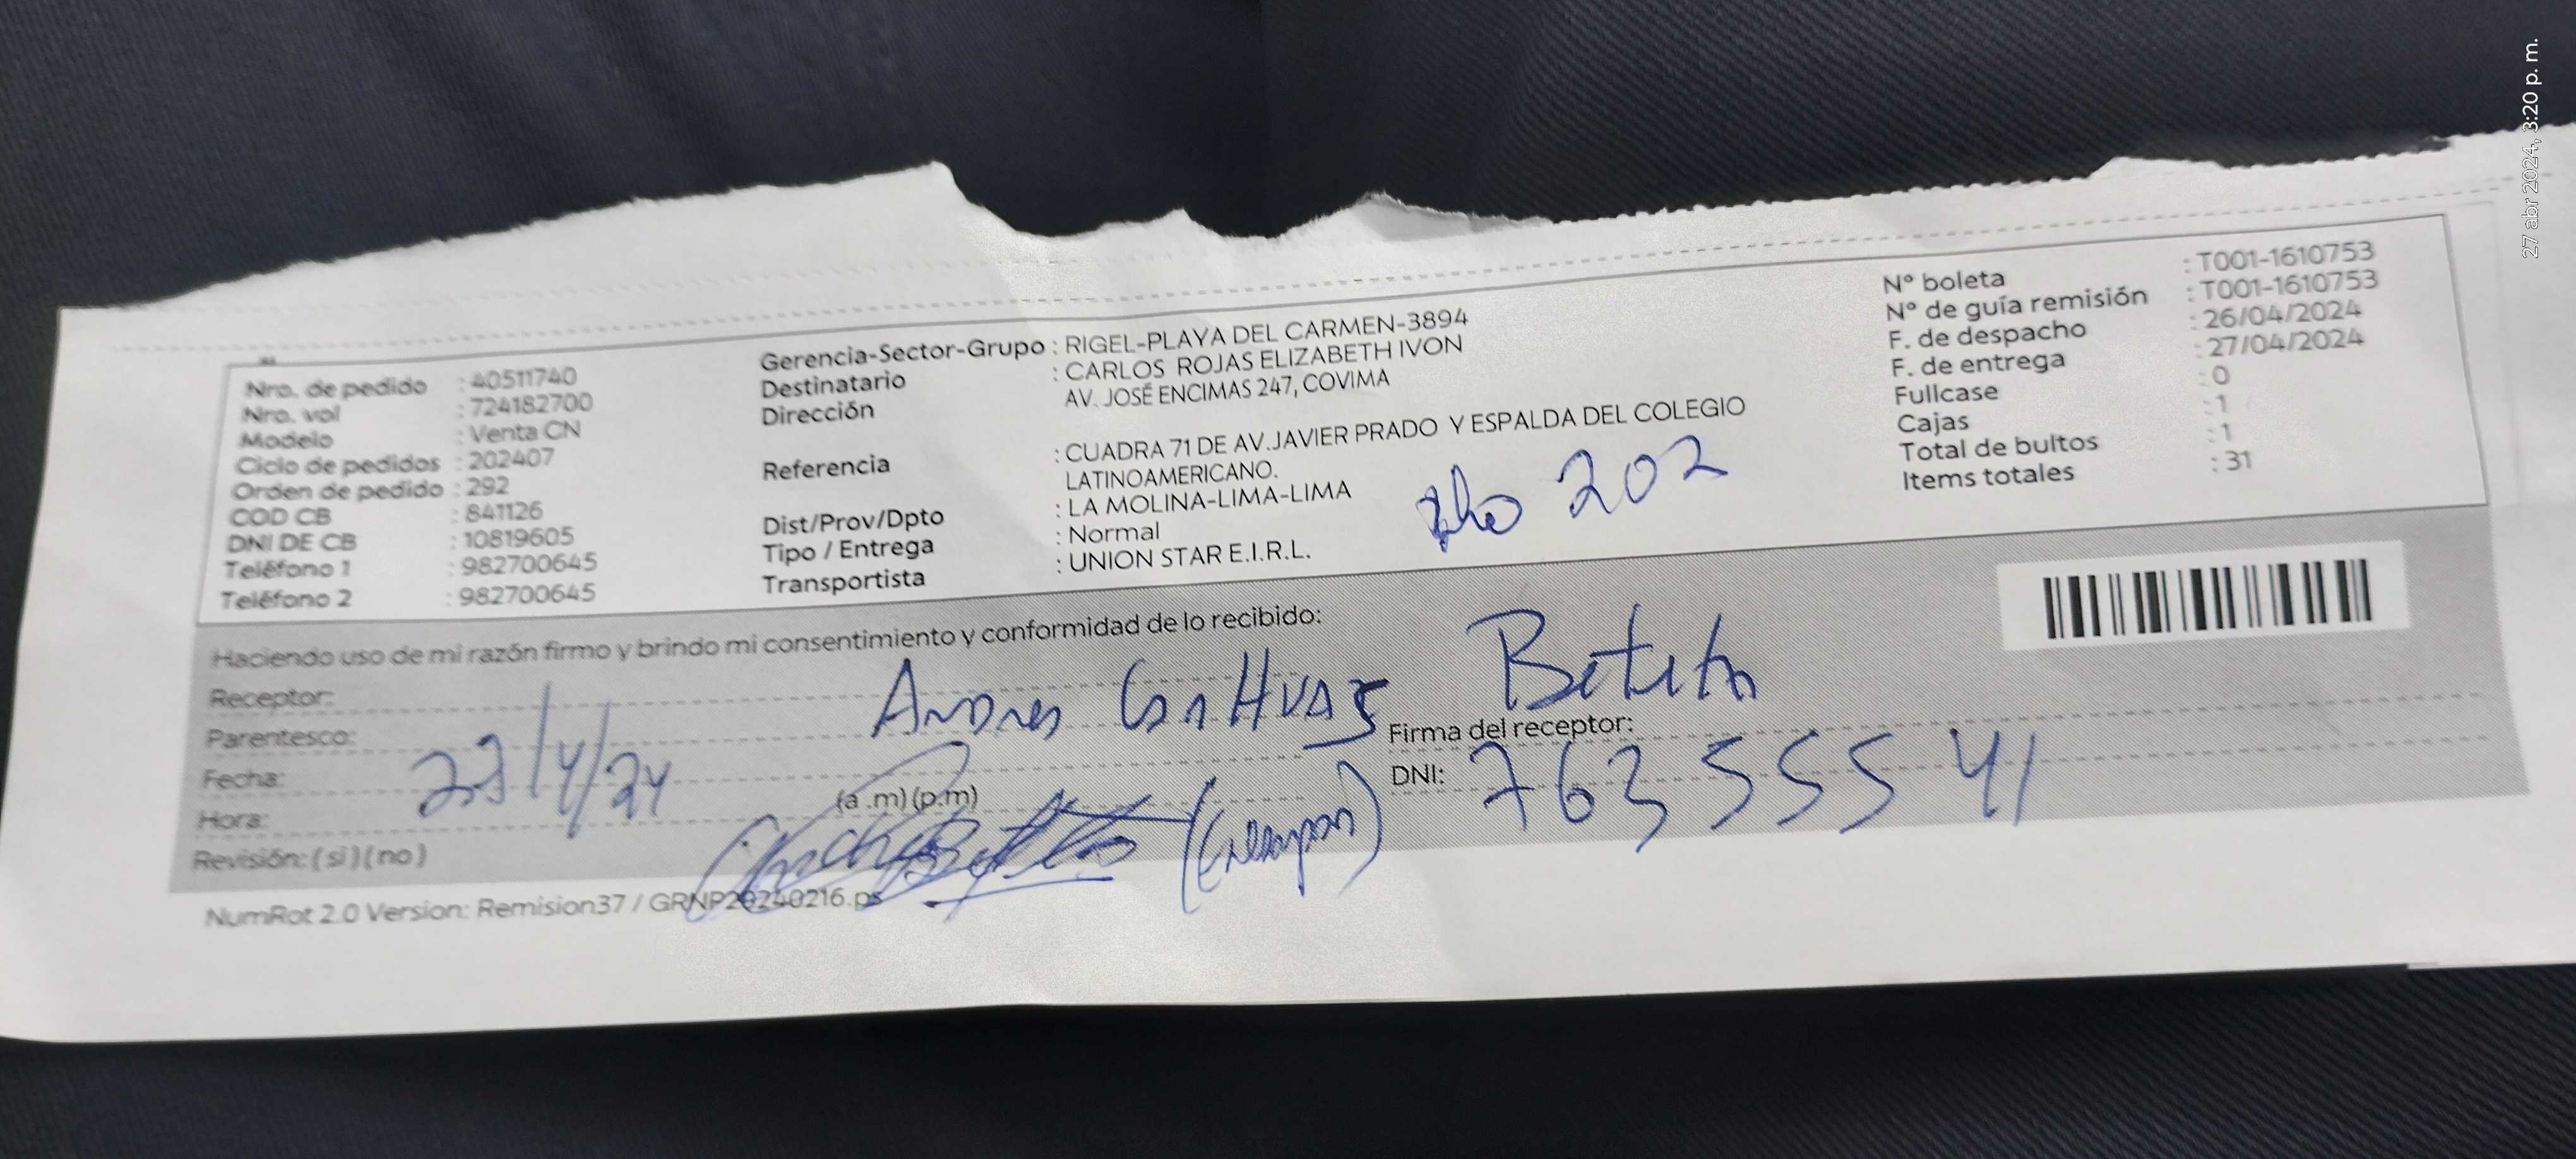 27 abr 2024, 3:20 p. m.
Nro. de pedido : 40511740
Nro. vol : 724182700
Modelo : Venta CN
Ciclo de pedidos : 202407
Orden de pedido : 292
COD CB : 841126
DNI DE CB : 10819605
Teléfono 1 : 982700645
Teléfono 2 : 982700645
Gerencia-Sector-Grupo : RIGEL-PLAYA DEL CARMEN-3894
Destinatario : CARLOS ROJAS ELIZABETH IVON
Dirección AV. JOSÉ ENCIMAS 247, COVIMA
Referencia : CUADRA 71 DE AV.JAVIER PRADO Y ESPALDA DEL COLEGIO
LATINOAMERICANO.
Dist/Prov/Dpto : LA MOLINA-LIMA-LIMA
Tipo / Entrega : Normal
Transportista : UNION STAR E.I.R.L.
202
N° boleta : T001-1610753
N° de guía remisión : T001-1610753
F. de despacho : 26/04/2024
F. de entrega : 27/04/2024
Fullcase : 0
Cajas : 1
Total de bultos : 1
Items totales : 31
Haciendo uso de mi razón firmo y brindo mi consentimiento y conformidad de lo recibido:
Receptor:
Parentesco:
Fecha: /4/24
Hora: (a .m) (p.m)
Revisión: ( si ) ( no )
Firma del receptor:
DNI: 76355541
NumRot 2.0 Version: Remision37 / GRNP20240216.ps